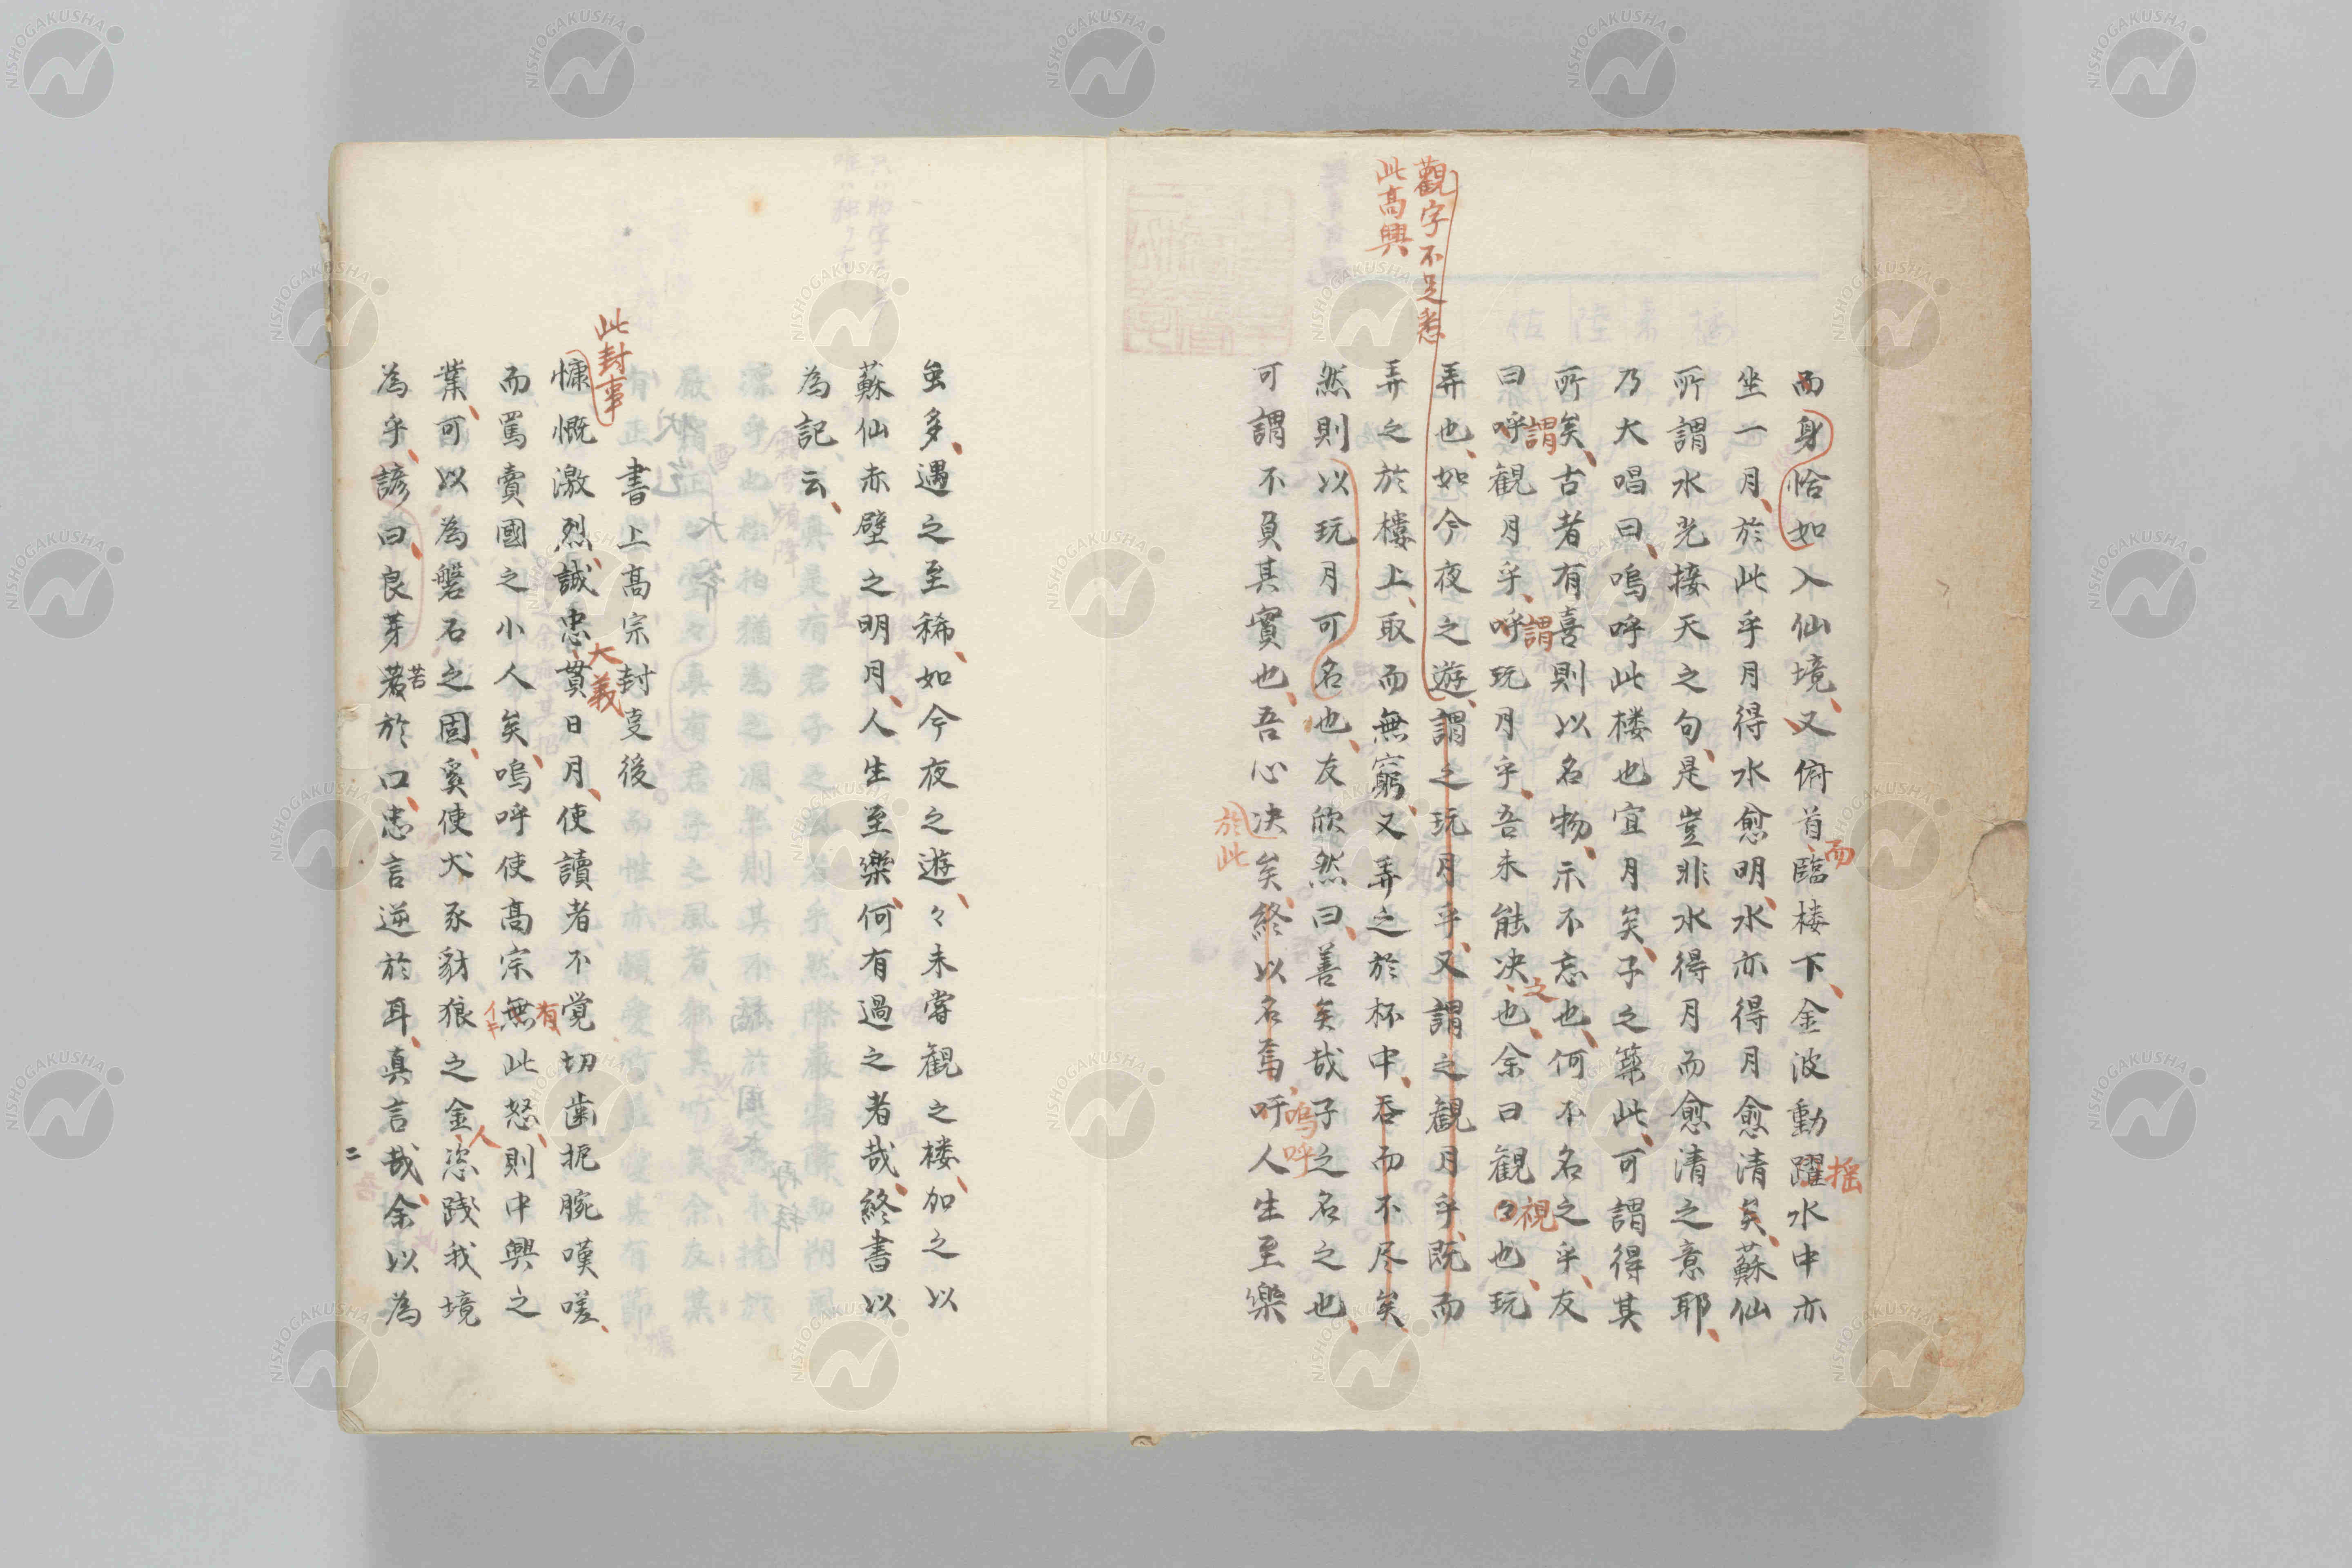 觀字不足惹
此高興
而身恰如入仙境又俯首臨楼下金波動躍水中亦
而
揺
坐一月於此乎月得水愈明水亦得月愈清矣蘇仙
所謂水光接天之句是豈非水得月而愈清之意耶
乃大唱曰嗚呼此楼也宜月矣子之築此可謂得其
所矣古者有喜則以名物示不忘也何不名之乎友
曰呼観月乎呼玩月乎吾未能决也余曰観々也玩
謂
謂
之
視
弄也如今夜之遊謂之玩月乎又謂之観月乎既而
弄之於樓上取而無窮又弄之於杯中吞而不尽矣
然則以玩月可名也友欣然曰善矣哉子之名之也
可謂不負其實也吾心决矣終以名焉吁人生至樂
嗚呼
於此
虽多遇之至稀如今夜之遊々未甞観之楼加之以
蘇仙赤壁之明月人生至樂何有過之者哉終書以
為記云
書上高宗封叓後
此封事
慷慨激烈誠忠貫日月使讀者不覚切歯扼腕嘆嗟
大義
而罵賣國之小人矣嗚呼使高宗無此怒則中興之
有
業可以為磐石之固奚使犬豕豺狼之金恣践我境
人
為乎諺曰良芽若於口忠言逆於耳真言哉余以為
苦
二
NISHOGAKUSHA